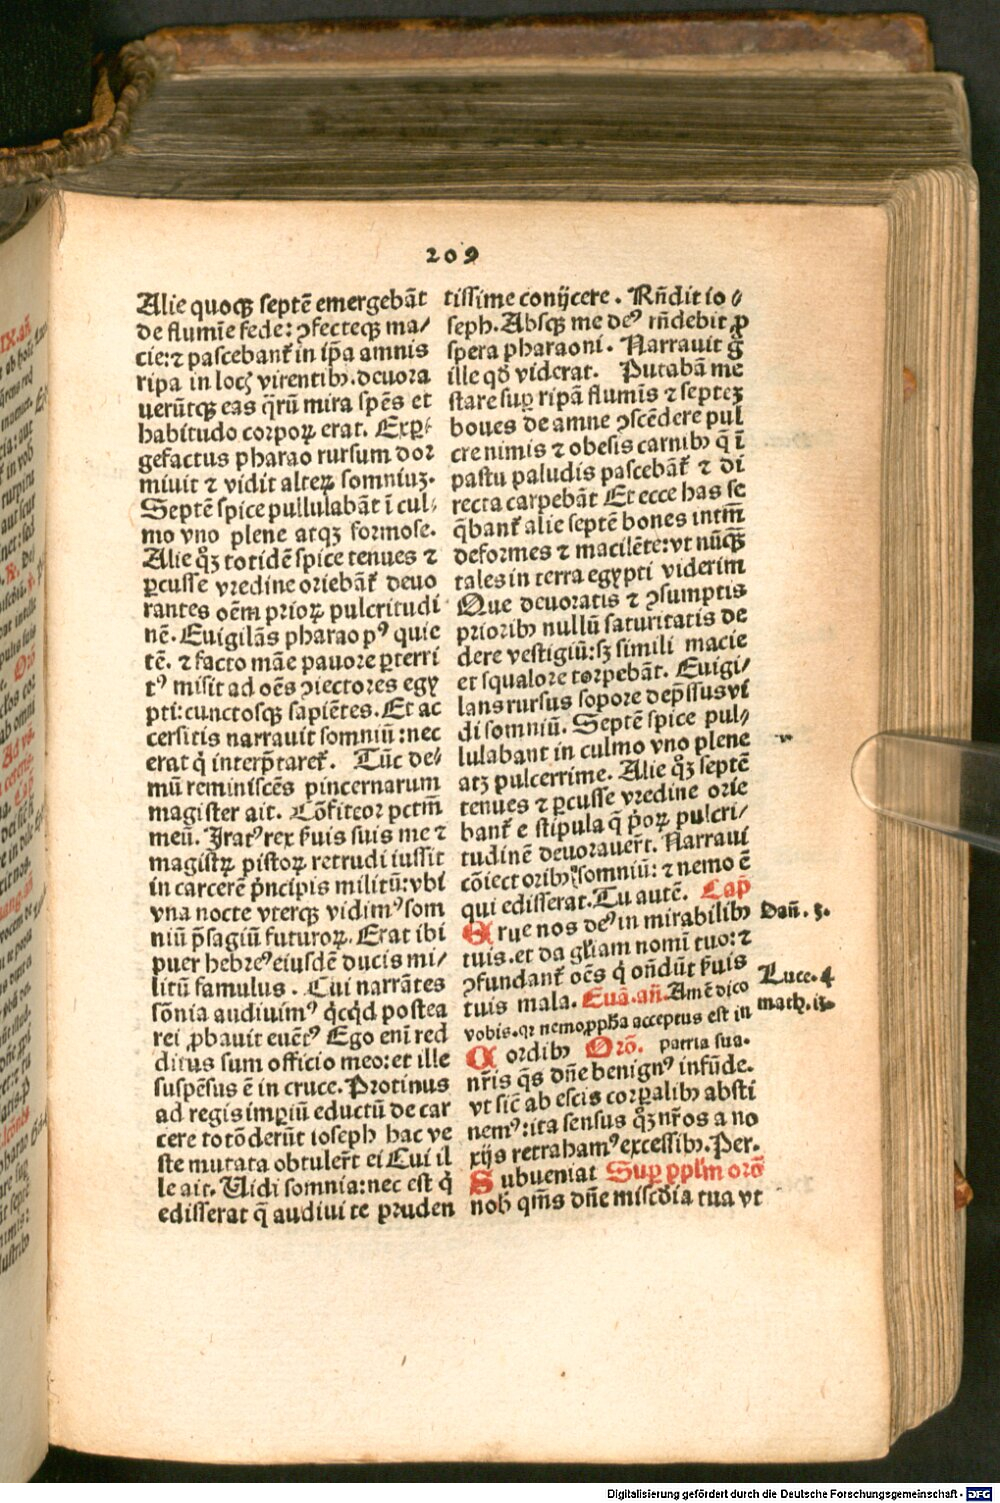 209
Alie quoqꝫ septē emergebāt
de flumīe fede: ↄfecteqꝫ ma/
cie: ⁊ pascebant᷑ in ip̄a amnis
ripa in locꝭ virentibꝰ. deuora
uerūtqꝫ eas q̄rū mira spēs et
habitudo corpoꝝ erat. Exꝑ⸗
gefactus pharao rursum dor
miuit ⁊ vidit alteꝝ somniuꝫ.
Septē spice pullulabāt ī cul⸗
mo vno plene atqꝫ formose.
Alie qͦꝫ totidē spice tenues ⁊
ꝑcusse vredine oriebāt᷑ deuo
rantes oēm prioꝝ pulcritudi
nē. Euigilās pharao pꝰ quie
tē. ⁊ facto māe pauore ꝑterri
tꝰ misit ad oēs ↄiectores egy
pti: cunctosqꝫ sapiētes. Et ac
cersitis narrauit somniū: nec
erat q̇ interp̄taret᷑. Tūc de⸗
mū reminiscēs pincernarum
magister ait. Cōfiteor pctm̄
meū. Iratꝰ rex s̄uis suis me ⁊
magistꝝ pistoꝝ retrudi iussit
in carcerē p̄ncipis militū: vbi
vna nocte vterqꝫ vidimꝰ som
niū p̄sagiū futuroꝝ. Erat ibi
puer hebreꝰ eiusdē ducis mi⸗
litū famulus. Cui narrātes
sōnia audiuimꝰ qͥcqͥd postea
rei ꝓbauit euētꝰ Ego enī red
ditus sum officio meo: et ille
suspēsus ē in cruce. Protinus
ad regis imꝑiū eductū de car
cere totōderūt ioseph hac ve
ste mutata obtuler̄t ei Cui il
le ait. Uidi somnia: nec est q̇
edisserat q̄ audiui te pruden
tissime conijcere. Rn̄dit io⸗
seph. Absqꝫ me deꝰ rn̄debit ꝓ
spera pharaoni. Narrauit g̊
ille qd̄ viderat. Putabā me
stare suꝑ ripā flumīs ⁊ septeꝫ
boues de amne ↄscēdere pul
cre nimis ⁊ obesis carnibꝰ q̄ ī
pastu paludis pascebāt᷑ ⁊ vi
recta carpebāt Et ecce has se
q̄bant᷑ alie septē bones intm̄
deformes ⁊ macilēte: vt nūqꝫ
tales in terra egypti viderim
Que deuoratis ⁊ ↄsumptis
prioribꝰ nullū saturitatis de
dere vestigiū: sꝫ simili macie
et squalore torpebāt. Euigi/
lans rursus sopore dep̄ssus vi
di somniū. Septē spice pul/
lulabant in culmo vno plene
atꝫ pulcerrime. Alie qͦꝫ septē
tenues ⁊ ꝑcusse vredine orie
bant᷑ e stipula q̄ p̄oꝝ pulcri/
tudinē deuorauer̄t. Narraui
cōiectoribꝰ somniū: ⁊ nemo ē
qui edisserat. Tu autē. Cap̄
Erue nos deꝰ in mirabilibꝰ Dan̄. 3.
tuis. et da gl̄iam nomī tuo: ⁊
ↄfundant᷑ oēs q̇ on̄dūt s̄uis Luce. 4
tuis mala. Euā. an̄. Amē dico math. 13
vobis. qꝛ nemo ꝓpha acceptus est in
patria sua.
Cordibꝰ Orō.
nr̄is q̄s dn̄e benignꝰ infūde.
vt sic̄ ab escis corꝑalibꝰ absti
nemꝰ: ita sensus qͦꝫ nr̄os a no
xijs retrahamꝰ excessibꝰ. Per.
Subueniat Suꝑ ppl̄m orō
nobꝰ qm̄s dn̄e misc̄dia tua vt
Digitalisierung gefördert durch die Deutsche Forschungsgemeinschaft - DFG